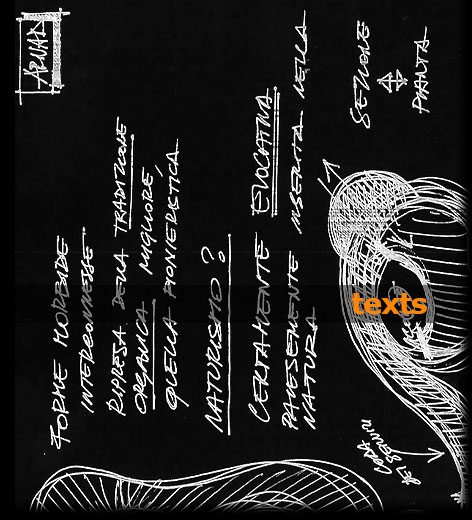 ARNAD
FORME MORBIDE
INTERCONNESSE
RIPRESA DELLA TRADIZIONE
ORGANICA MIGLIORE,
QUELLA PIONIERISTICA
NATURISMO?
CERTAMENTE EVOCATIVA
PALESEMENTE INSERITA NELLA
NATURA
SEZIONE
PIANTA
texts